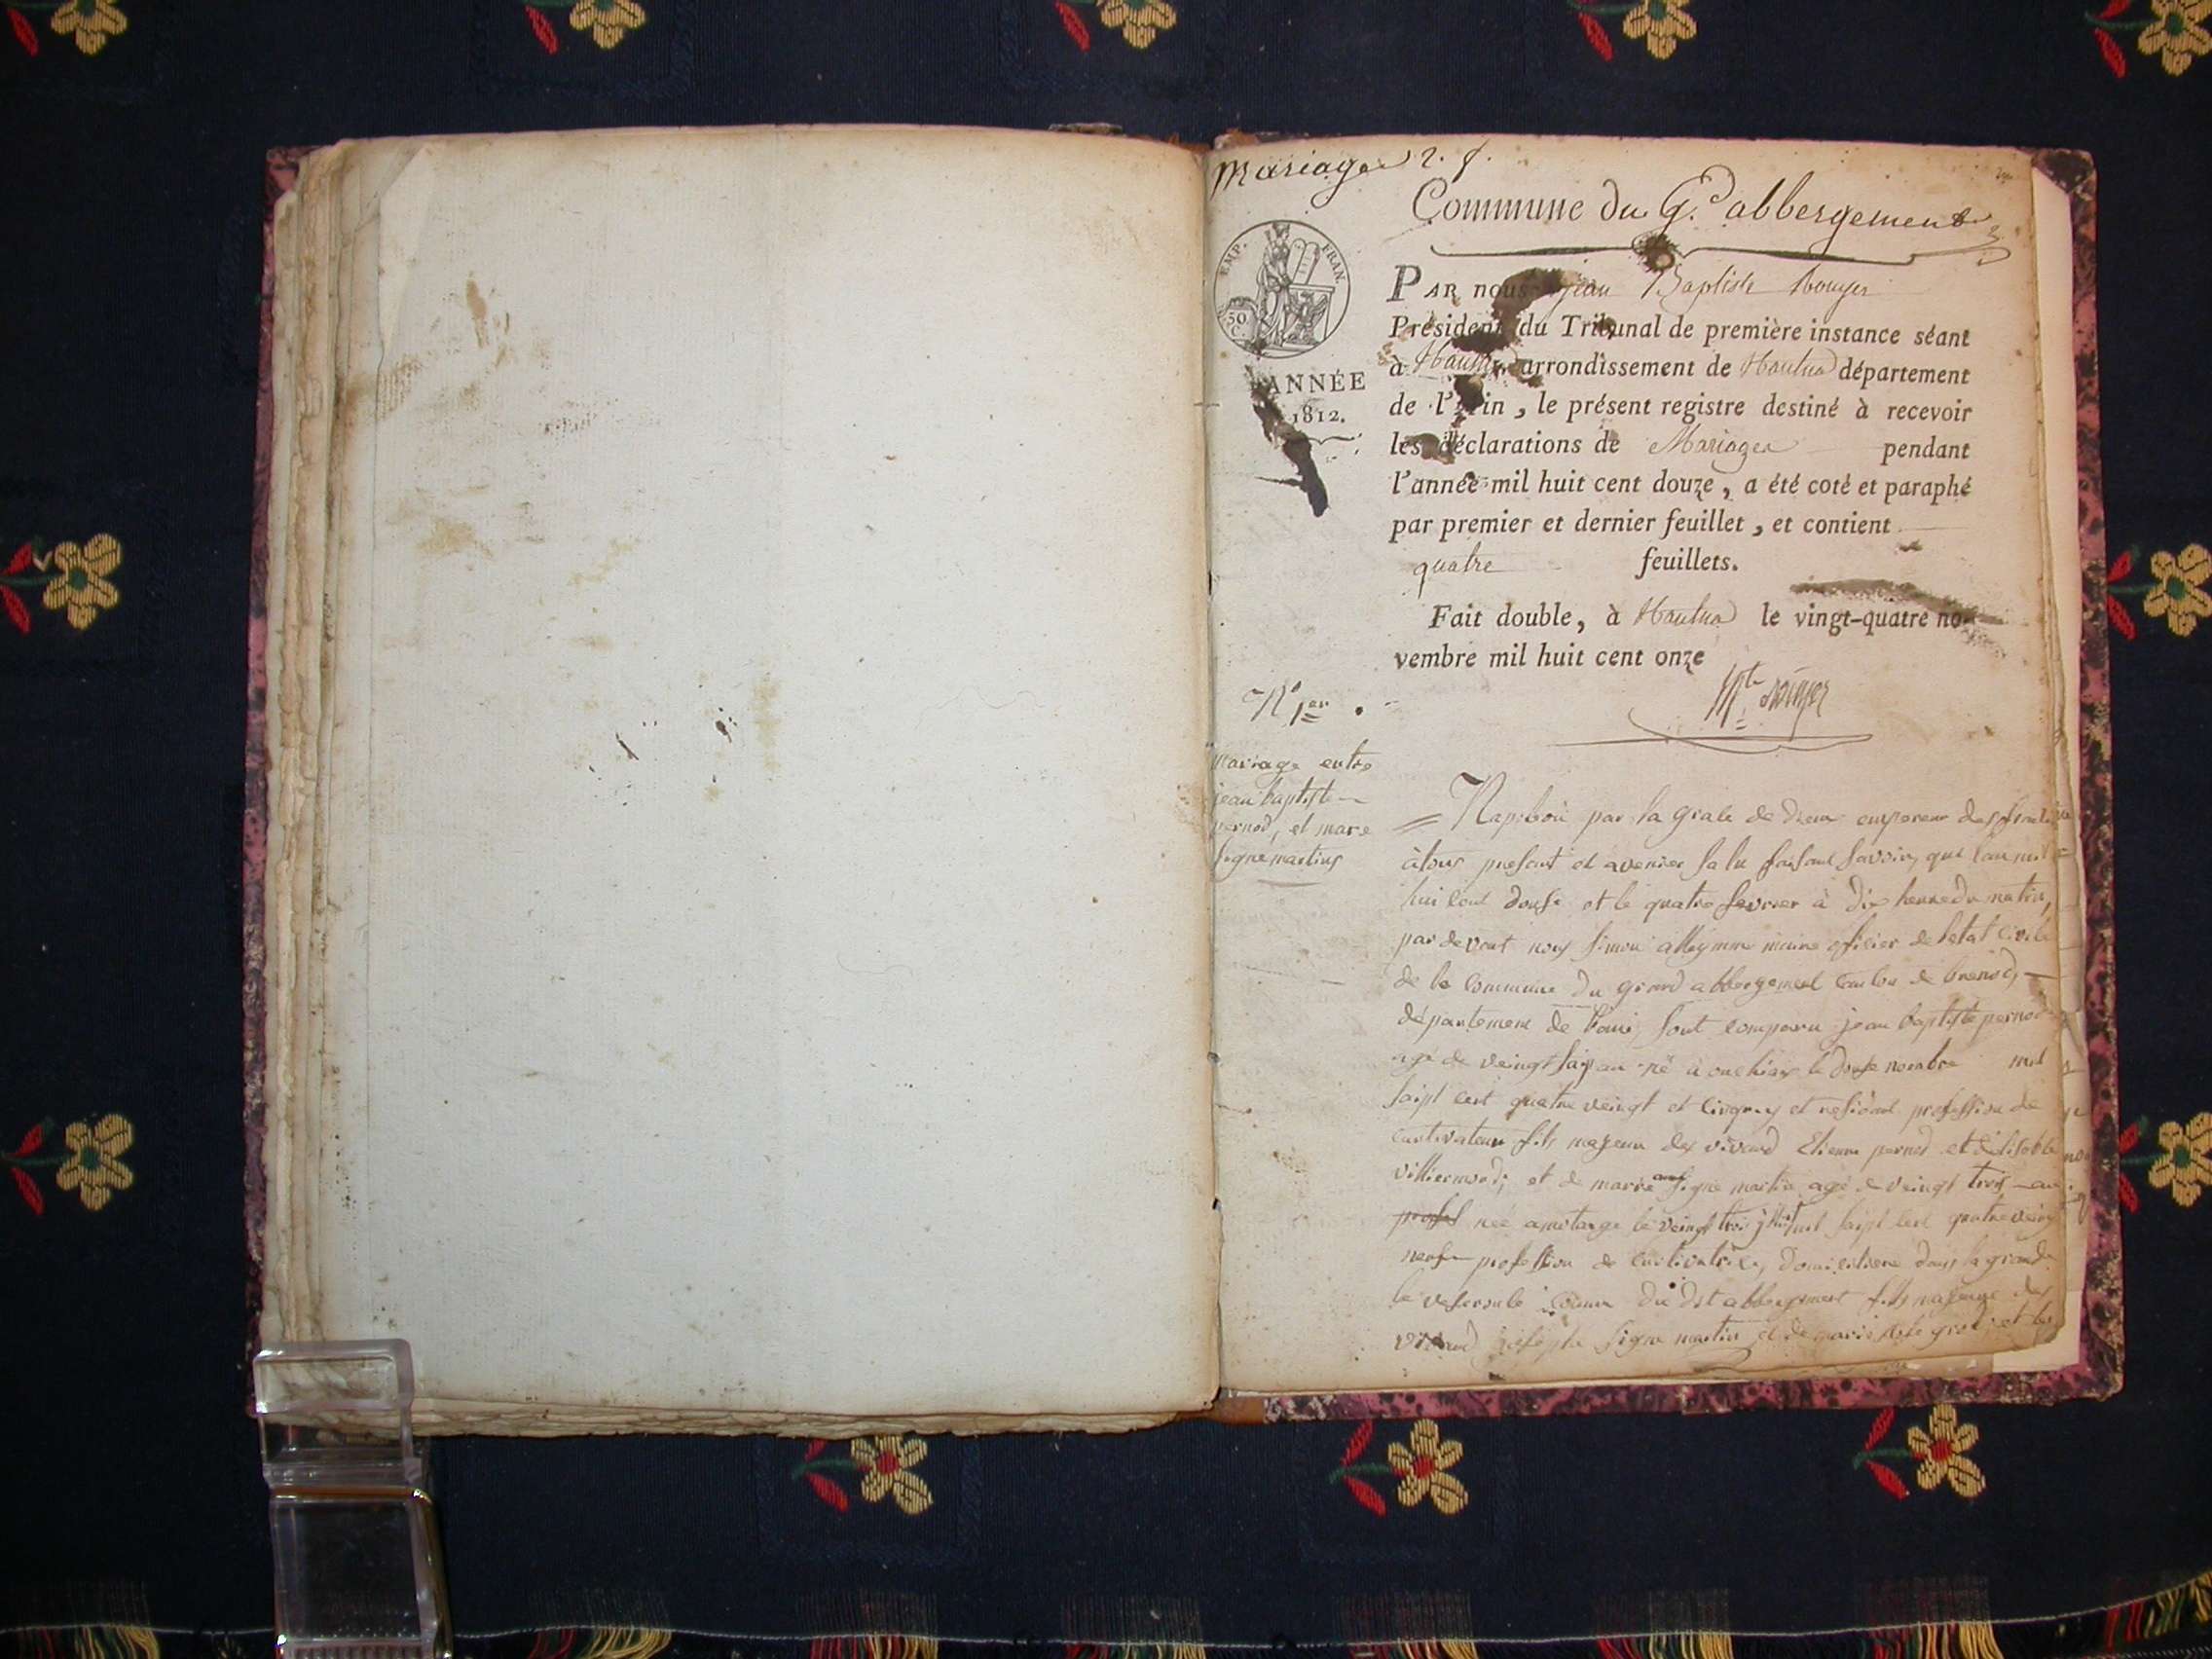 Mariages 2. f.
Commune du G.d abbergement
EMP. FRAN.
50
C.
ANNÉE
1812.
PAR nous jean Baptiste Rouyer
Président du Tribunal de première instance séant
à Nantua arrondissement de Nantua département
de l'Ain, le présent registre destiné à recevoir
les déclarations de Mariages pendant
l'année mil huit cent douze, a été coté et paraphé
par premier et dernier feuillet, et contient
quatre feuillets.
Fait double, à Nantua le vingt-quatre no-
vembre mil huit cent onze
Rouyer
N° 1er
mariage entre
jean baptiste
pernod, et marie
signemartin
Napoleon par la grace de Dieu empereur des
à tous present et avenier salu faisont savoir, que lan mil
hui cent douse et le quatre fevrier à dix heure du matin,
par devant nous simon maire oficier de letat civile
de la commune du grand abbergement canton de brenod,
département de sont comparu jean baptiste pernod
agé de veingt an né à le douse mil
saipt cent quatre veingt et et residant profession de
cultivateur fils majeur des vivand Etienne pernod et
et de marie signe martin agé de veingt trois an
née le veingt trois mil saipt cent quatre veing
neuf profession de cultivatrice, dans la grand
du dit abbergement des
joseph signe martin et de marie et les